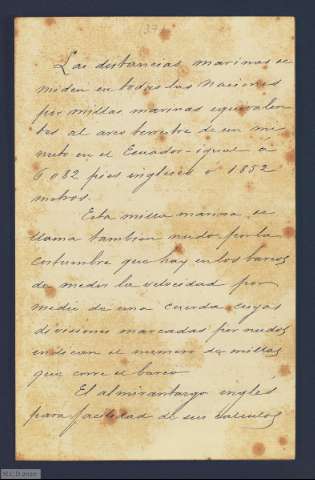 Las distancias marinas se
miden en todas las naciones
por millas marinas equivalen
tes al arco terrestre de un mi
nuto en el Ecuador - igual á
6.082 pies ingleses ó 1852
metros.
Esta milla marina se
llama tambien nudo por la
costumbre que hay en los barcos
de medir la velocidad por
medio de una cuerda cuyas
divisiones marcadas por nudos
indican el numero de millas
que corre el barco
El almirantazgo inglés
para facilidad de sus calculos